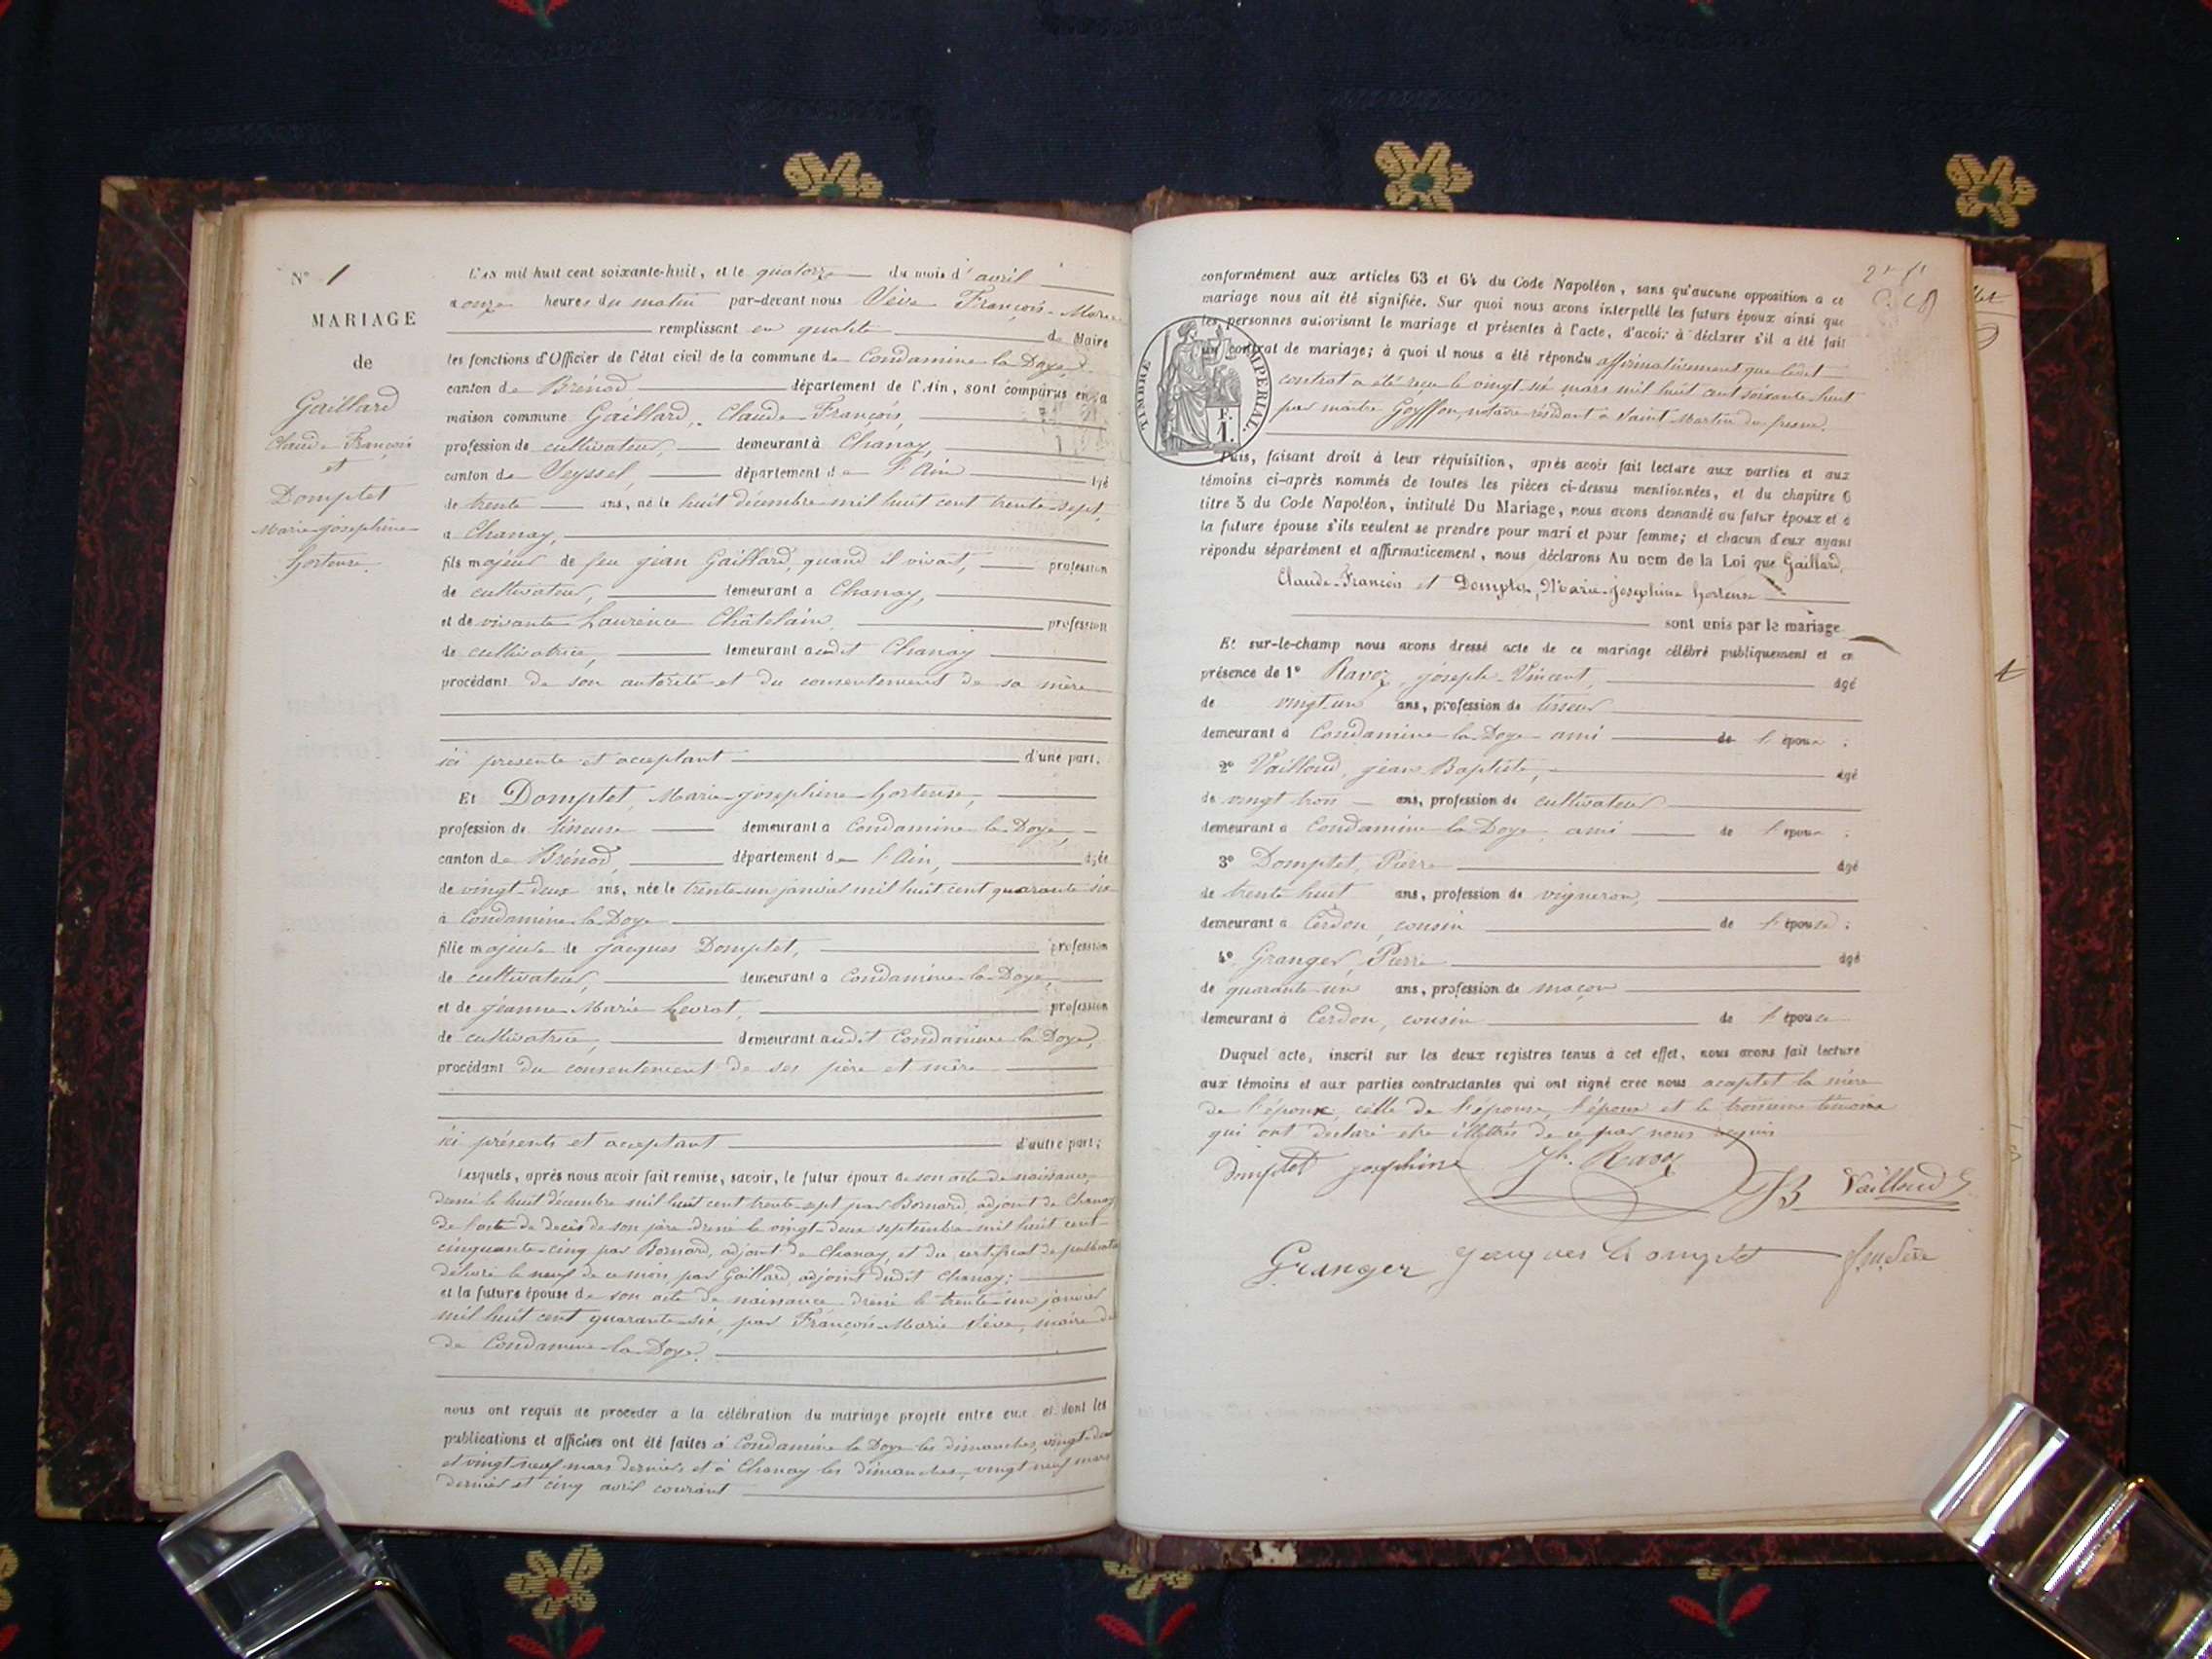 N° 1
MARIAGE
de
Gaillard
Claude François
et
Domptet
Marie-joséphine
hortense.
L'an mil huit cent soixante-huit, et le quatorze du mois d'avril
onze heures du matin par-devant nous Sève François-Marie
remplissant en qualité de Maire
les fonctions d'Officier de l'état civil de la commune de Condamine la Doye,
canton de Brénod département de l'Ain, sont comparus en la
maison commune Gaillard, Claude-François,
profession de cultivateur, demeurant à Chanay,
canton de Seyssel, département de l'Ain âgé
de trente ans, né le huit décembre mil huit cent trente-sept,
à Chanay,
fils majeur de feu jean Gaillard, quand il vivait, profession
de cultivateur, demeurant à Chanay,
et de vivante Laurence Châtelain, profession
de cultivatrice, demeurant audit Chanay
procédant de son autorité et du consentement de sa mère
ici présente et acceptant d'une part.
Et Domptet, Marie-joséphine-hortense,
profession de tisseuse demeurant à Condamine la Doye,
canton de Brénod, département de l'Ain, âgée
de vingt-deux ans, née le trente-un janvier mil huit cent quarante-six
à Condamine la Doye
fille majeure de jacques Domptet, profession
de cultivateur, demeurant à Condamine la Doye,
et de jeanne-Marie Levrat, profession
de cultivatrice, demeurant audit Condamine la Doye,
procédant du consentement de ses père et mère
ici présents et acceptant d'autre part;
Lesquels, après nous avoir fait remise, savoir, le futur époux de son acte de naissance,
dressé le huit décembre mil huit cent trente-sept par Bornard, adjoint de Chanay
de l'acte de décès de son père dressé le vingt-deux septembre mil huit cent
cinquante-cinq par Bornard, adjoint de Chanay, et du certificat de publication
délivré le neuf de ce mois par Gaillard, adjoint dudit Chanay;
et la future épouse de son acte de naissance dressé le trente-un janvier
mil huit cent quarante-six, par François-Marie Sève, maire de
de Condamine la Doye.
nous ont requis de procéder à la célébration du mariage projeté entre eux et dont les
publications et affiches ont été faites à Condamine la Doye les dimanches, vingt-deux
et vingt neuf mars derniers et à Chanay les dimanches, vingt neuf mars
dernier et cinq avril courant
conformément aux articles 63 et 64 du Code Napoléon, sans qu'aucune opposition à ce
mariage nous ait été signifiée. Sur quoi nous avons interpellé les futurs époux ainsi que
les personnes autorisant le mariage et présentes à l'acte, d'avoir à déclarer s'il a été fait
un contrat de mariage; à quoi il nous a été répondu affirmativement que ledit
contrat a été reçu le vingt-six mars mil huit cent soixante-huit
par maître Goyffon, notaire résidant à Saint Martin du fresne.
TIMBRE IMPERIAL.
F.
1.
Puis, faisant droit à leur réquisition, après avoir fait lecture aux parties et aux
témoins ci-après nommés de toutes les pièces ci-dessus mentionnées, et du chapitre 6
titre 5 du Code Napoléon, intitulé Du Mariage, nous avons demandé au futur époux et à
la future épouse s'ils veulent se prendre pour mari et pour femme; et chacun d'eux ayant
répondu séparément et affirmativement, nous déclarons Au nom de la Loi que Gaillard,
Claude-François et Domptet, Marie-joséphine hortense
sont unis par le mariage.
Et sur-le-champ nous avons dressé acte de ce mariage célébré publiquement et en
présence de 1° Ravoz, joseph-Vincent, âgé
de vingt un ans, profession de tisseur
demeurant à Condamine la Doye ami de l'époux;
2° Vailloud, jean Baptiste, âgé
de vingt trois ans, profession de cultivateur
demeurant à Condamine la Doye, ami de l'époux;
3° Domptet, Pierre âgé
de trente huit ans, profession de vigneron,
demeurant à Cerdon, cousin de l'épouse;
4° Granger, Pierre âgé
de quarante-un ans, profession de maçon
demeurant à Cerdon, cousin de l'épouse
Duquel acte, inscrit sur les deux registres tenus à cet effet, nous avons fait lecture
aux témoins et aux parties contractantes qui ont signé avec nous acceptet la mère
de l'époux, celle de l'épouse, l'époux et le troisième témoin
qui ont déclaré être illettrés de ce par nous requis
Domptet joséphine Jh. Ravoz JB Vailloud
Granger jacques Domptet f. m. Sève